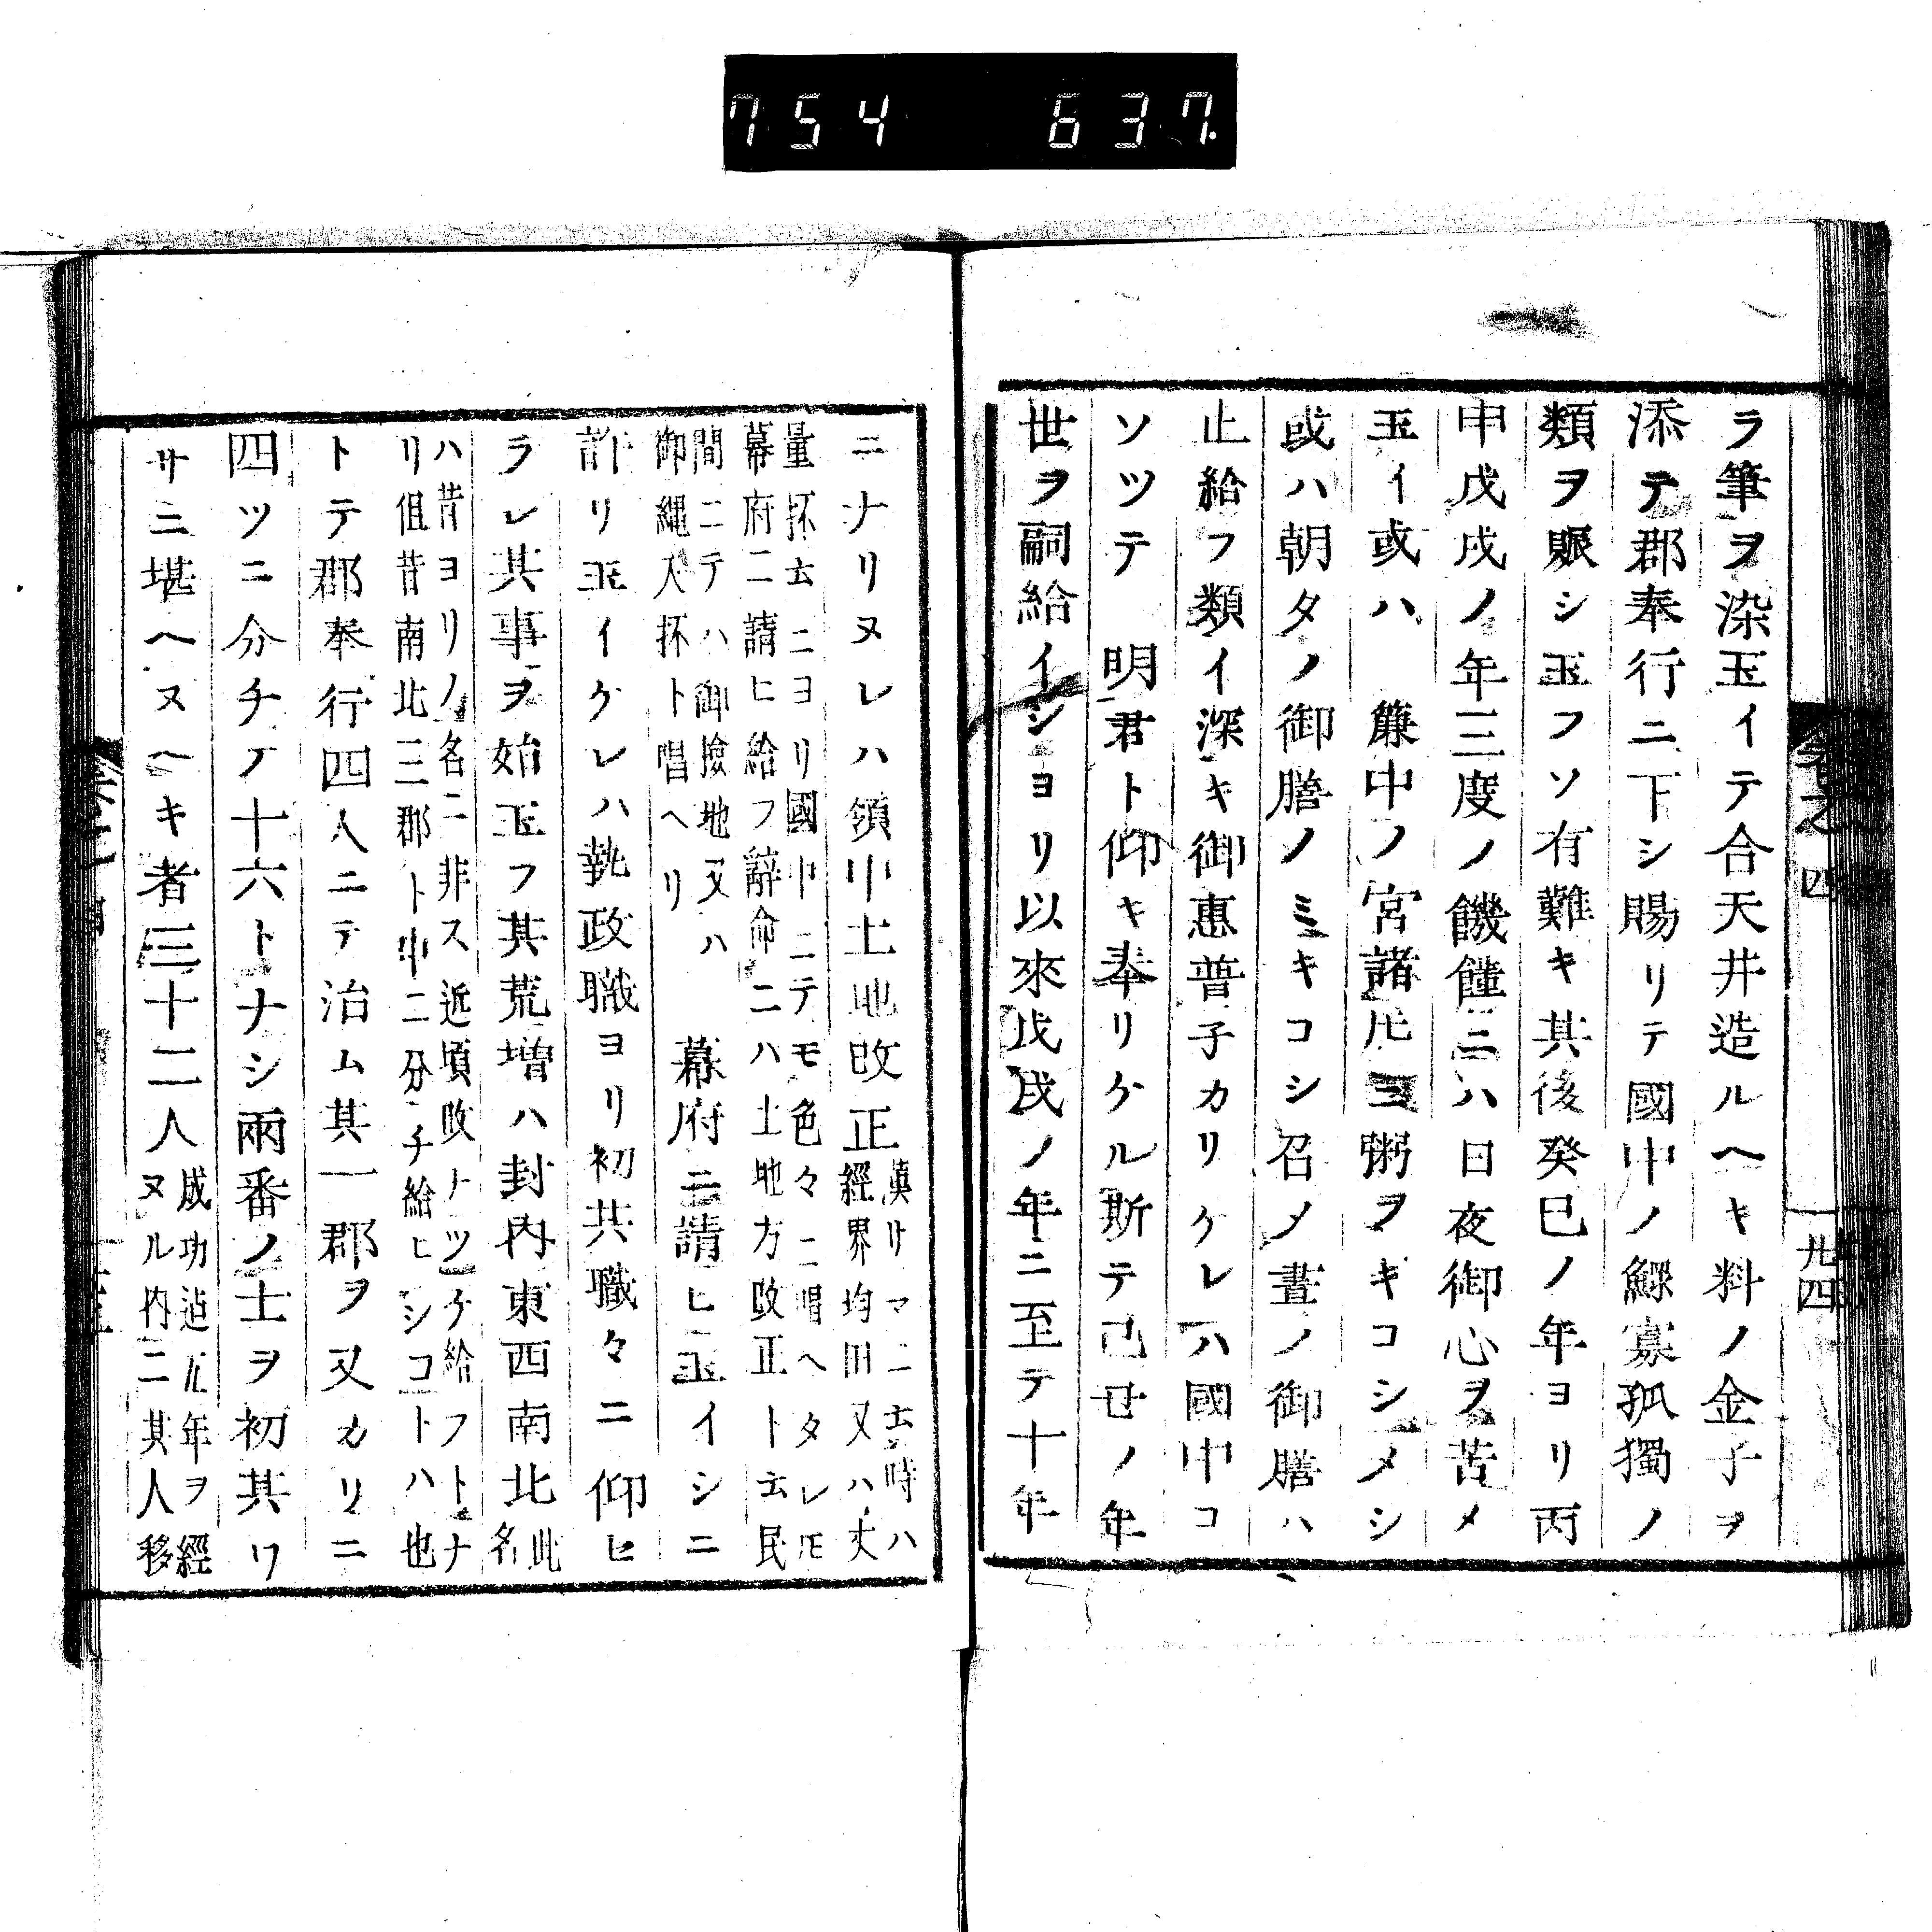 754 637
四
九四
ラ筆ヲ染玉イテ合天井造ルヘキ料ノ金子ヲ
添テ郡奉行ニ下シ賜リテ國中ノ鰥寡孤獨ノ
類ヲ賑シ玉フソ有難キ其後癸巳ノ年ヨリ丙
申戊戌ノ年三度ノ饑饉ニハ日夜御心ヲ苦メ
玉イ或ハ 簾中ノ宮諸𪜈ニ粥ヲキコシメシ
或ハ朝タノ御膳ノミキコシ召メ晝ノ御膳ハ
止給フ類イ深キ御惠普子カリケレハ國中コ
ソツテ 明君ト仰キ奉リケル斯テ己丑ノ年
世ヲ嗣給イシヨリ以來戊戌ノ年ニ至テ十年
ニナリヌレハ領中土地改正
漢サマニ云時ハ
經界均田又ハ丈
量抔云ニヨリ國中ニテモ色々ニ唱ヘタレ𪜈
幕府ニ請ヒ給フ辭命ニハ土地方改正ト云民
間ニテハ御撿地又ハ
御繩入抔ト唱ヘリ
幕府ニ請ヒ玉イシニ
許リ玉イケレハ執政職ヨリ初共職々ニ仰ヒ
ラレ其事ヲ始玉フ其荒増ハ封内東西南北
此
名
ハ昔ヨリノ名ニ非ス近頃改ナツケ給フトナ
リ但昔南北三郡ト中ニ分チ給ヒシコトハ也
トテ郡奉行四人ニテ治ム其一郡ヲ又カリニ
四ツニ分チテ十六トナシ兩番ノ士ヲ初其ワ
サニ堪ヘヌヘキ者三十二人
成功迠五年ヲ經
ヌル内ニ其人移